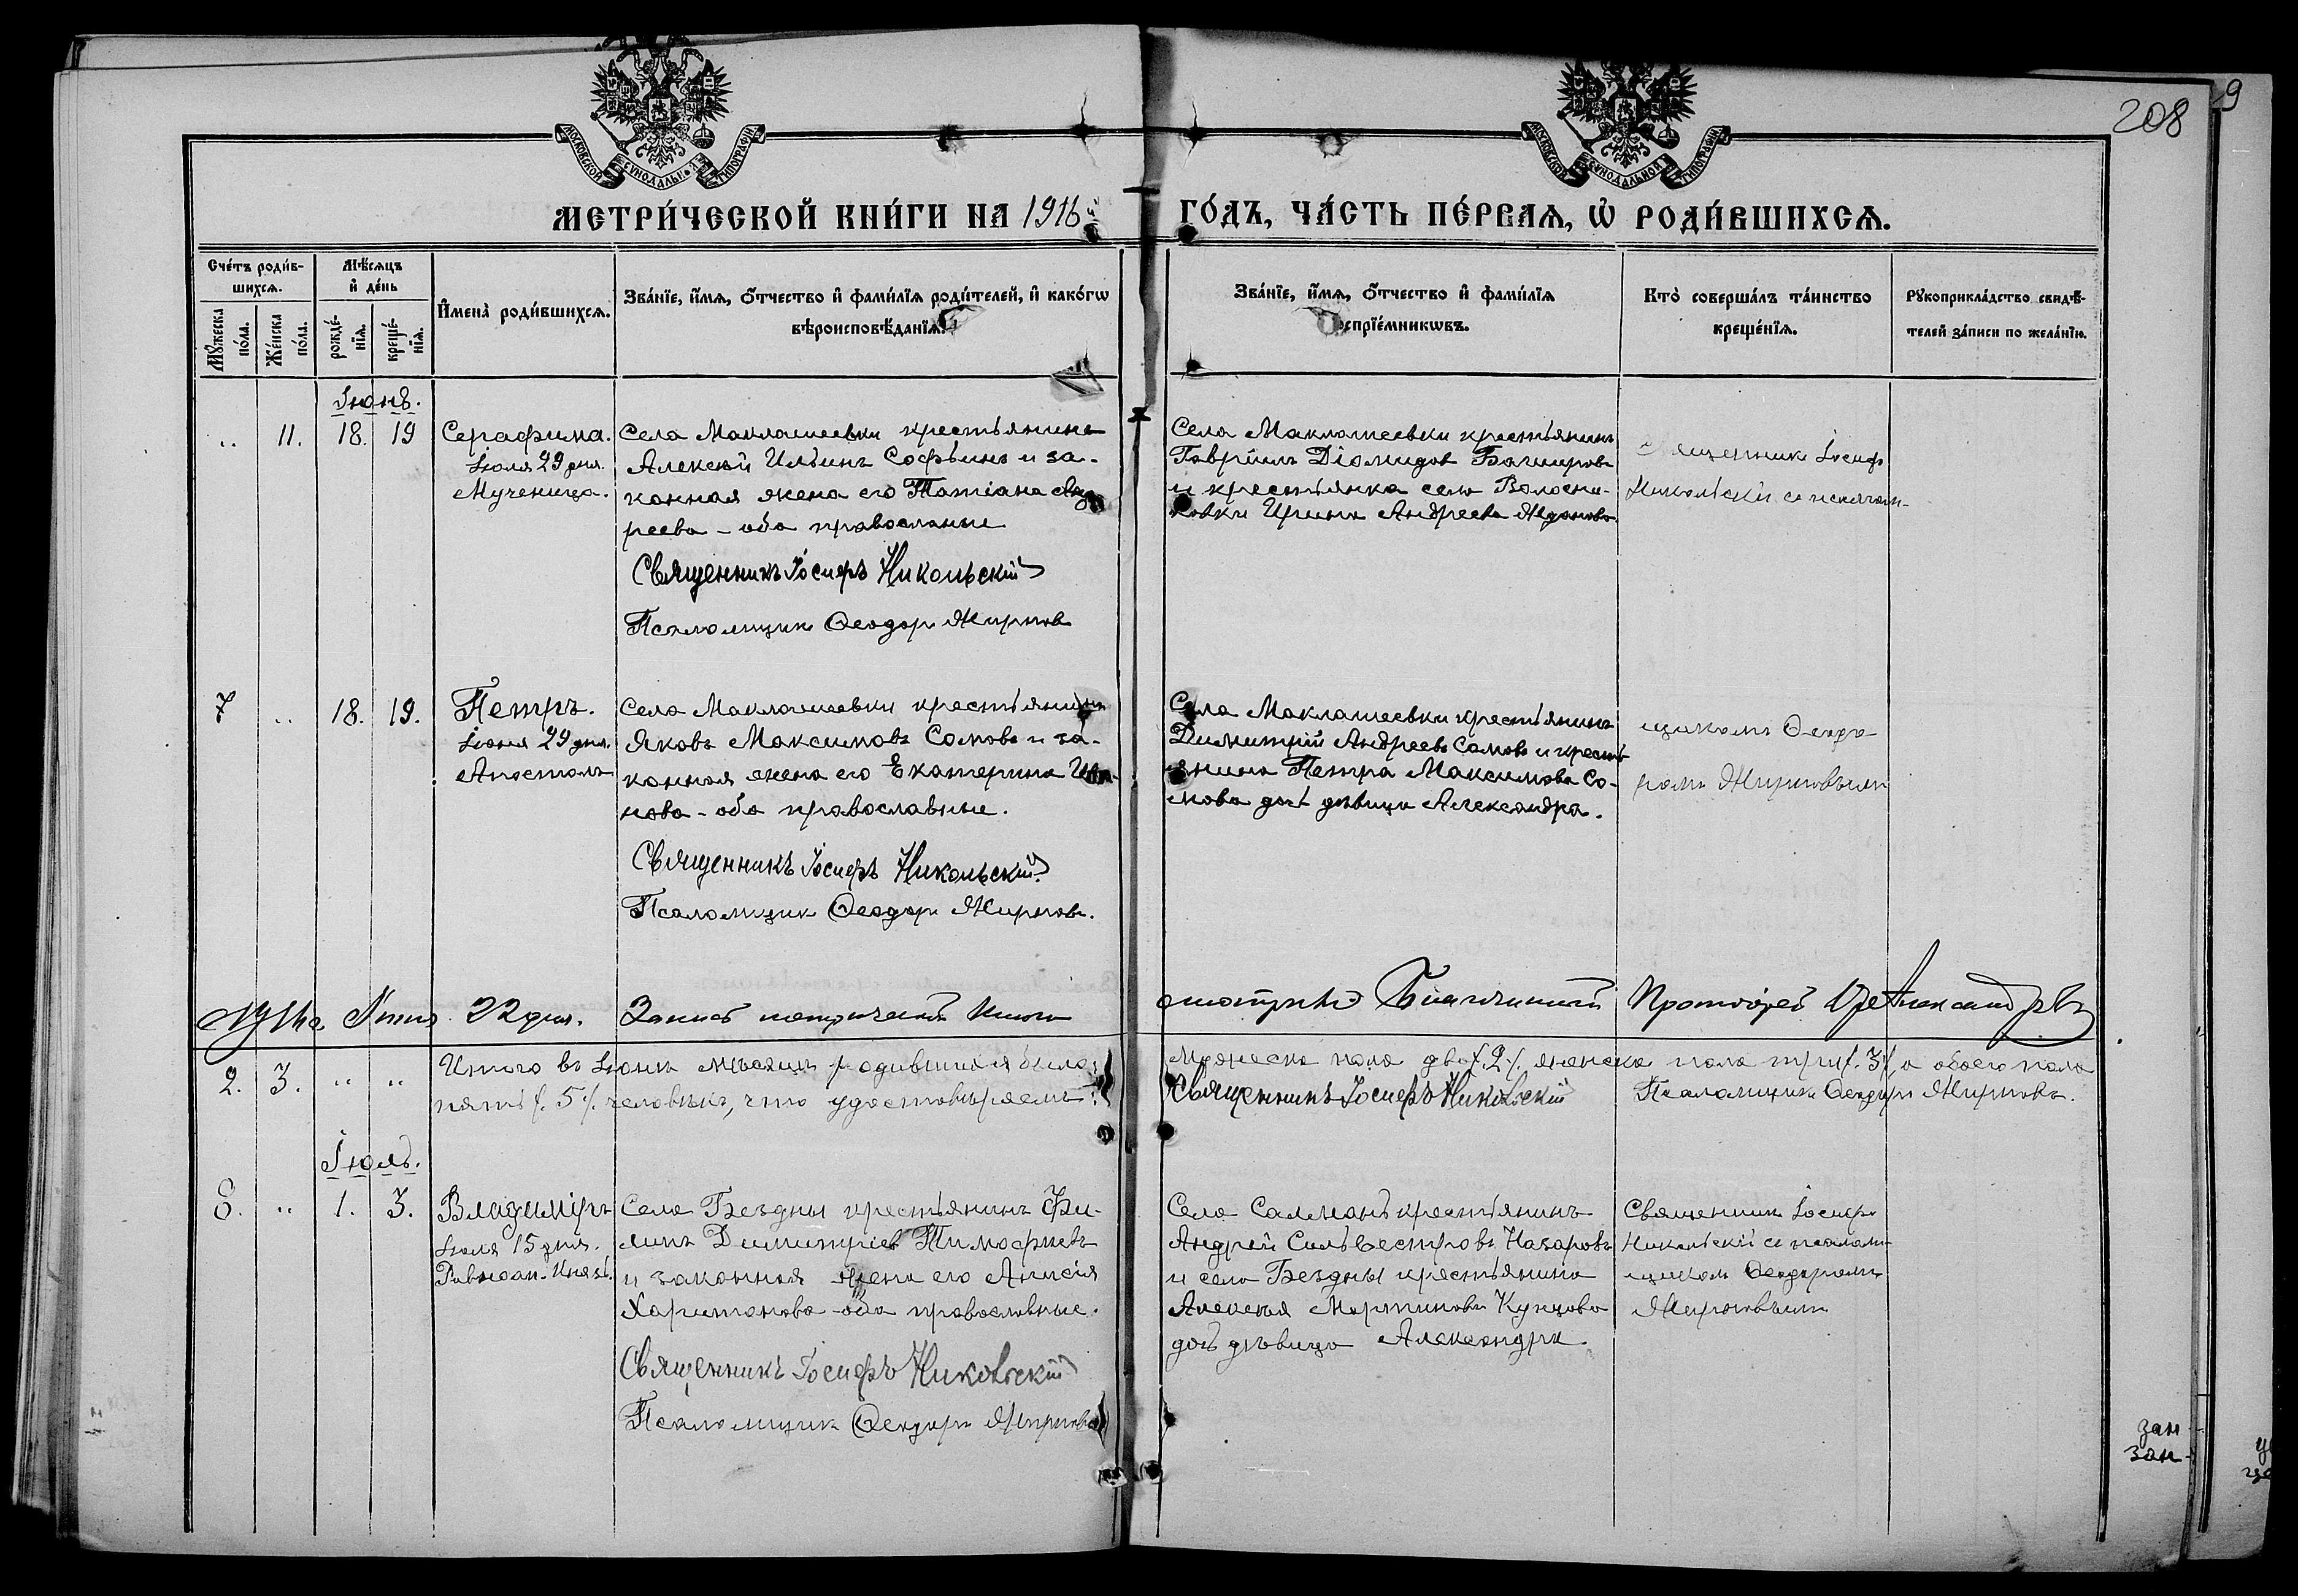 208
9
МОСКОВСКОЙ СѴНОДАЛЬНОЙ ТИПОГРАФІИ
МОСКОВСКОЙ СѴНОДАЛЬНОЙ ТИПОГРАФІИ
МЕТРИ́ЧЕСКОЙ КНИ́ГИ НА 1916й ГО́ДЪ, ЧА́СТЬ ПЕ́РВАѦ, Ѡ҆ РОДИ́ВШИХСѦ.
Сче́тъ роди́в-
шихсѧ.
Му́жеска по́ла.
Же́нска по́ла.
Мѣ́сѧцъ
и҆ де́нь
рожде́-
нїѧ.
креще́-
нїѧ.
И҆мена̀ роди́вшихсѧ.
Зва́нїе, и҆́мѧ, ѻ҆́тчество и҆ фами́лїѧ роди́телей, и҆ како́гѡ
вѣроисповѣ́данїѧ.
Зва́нїе, и҆́мѧ, ѻ҆́тчество и҆ фами́лїѧ
воспрїе́мникѡвъ.
Кто̀ соверша́лъ та́инство
креще́нїѧ.
Рꙋкоприкла́дство свидѣ́-
телей за́писи по жела́нїю.
Іюнь.
„ 11. 18. 19
Серафима.
Іюля 29 дня.
Мученица.
Села Маклашеевки крестьянинъ
Алексѣй Ильинъ Софьинъ и за-
конная жена его Татіана Анд
реева - оба православные
Священникъ Іосифъ Никольскій
Псаломщикъ Ѳеодоръ Жирновъ
Села Маклашеевки крестьянинъ
Гавріилъ Діомидовъ
и крестьянка села
Ирина Андреева Жданова
Священникъ Іосифъ
Никольскій съ псалом-
7 „ 18. 19.
Петръ.
Іюня 29 дня.
Апостолъ
Села Маклашеевки крестьянинъ
Яковъ Максимовъ Сомовъ и за-
конная жена его Екатерина Ива-
нова - оба православные.
Священникъ Іосифъ Никольскій
Псаломщикъ Ѳеодоръ Жирновъ.
Села Маклашеевки крестьянинъ
Димитрій Андреевъ Сомовъ и кресть
янина Петра Максимова Со-
мова дочь дѣвица Александра.
щикомъ Ѳеодо-
ромъ Жирновымъ
1916 г. Іюня 22 дня. Запись метрической книги
смотрѣлъ Благочинный Протоіерей Александровъ
2. 3. „ „
Итого въ Іюнѣ мѣсяцѣ родившихся было:
пять /.5./ человѣкъ, что удостовѣряемъ:
Мужеска пола два /.2./, женска пола три /.3./, а обоего пола
Священникъ Іосифъ Никольскій Псаломщикъ Ѳеодоръ Жирновъ.
Іюль.
8. „ 1. 3.
Владиміръ
Іюля 15 дня.
Равноап. Князь.
Села Бездны крестьянинъ Фи-
липъ Димитріевъ Тимофѣевъ
и законная жена его Анисія
Харитонова - оба православные.
Священникъ Іосифъ Никольскій
Псаломщикъ Ѳеодоръ Жирновъ
Села Салманъ крестьянинъ
Андрей Сильвестровъ Назаровъ
и села Бездны крестьянина
Алексѣя Мартинова Купцова
дочь дѣвица Александра.
Священникъ Іосифъ
Никольскій съ псалом-
щикомъ Ѳеодоромъ
Жирновымъ
зан
зап